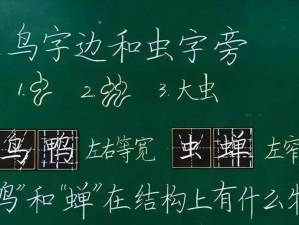 鸟字边和虫字旁
1. 2. 3.大虫
鸟 鸭 左右等宽 虫 蝉 左窄
”和“蝉”在结构上有什么